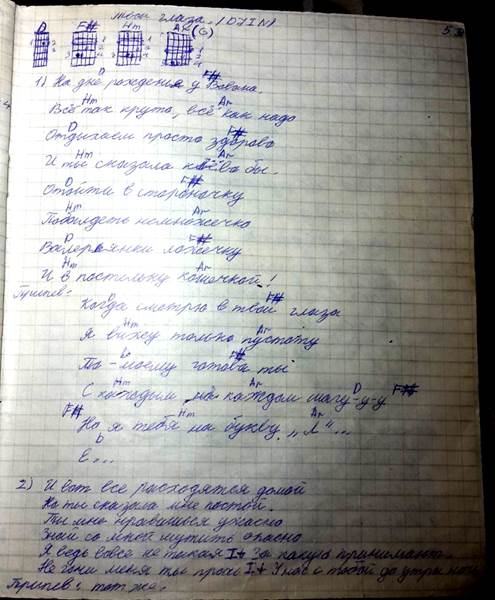 твои глаза. /DJIN/
5
D F# Hm Ar (G)
D F#
1) На дне рождения у Вована
Hm Ar
Всё так круто, всё как надо
D F#
Отдыхаем просто здорово
Hm Ar
И ты сказала бы.
D F#
Отойти в стороночку
Hm Ar
немножечко
D F#
Валерьянки ложечку
Hm Ar
И в постельку кошечкой!
Припев:
D F#
Когда смотрю в твои глаза
Hm Ar
Я вижу только пустоту
D F#
По-моему готова ты
Hm Ar D F#
С каждым, на каждом шагу-у-у
F# Hm Ar
Но я тебя на букву „Л"...
D
Е...
2) И вот все расходятся домой
Но ты сказала мне постой.
Ты мне нравишься ужасно
Знай со мной шутить опасно
Я ведь вовсе не такая I+ За какую принимают.
Не гони меня ты прочь I+ У нас с тобой до утра ночь
Припев: тот же.